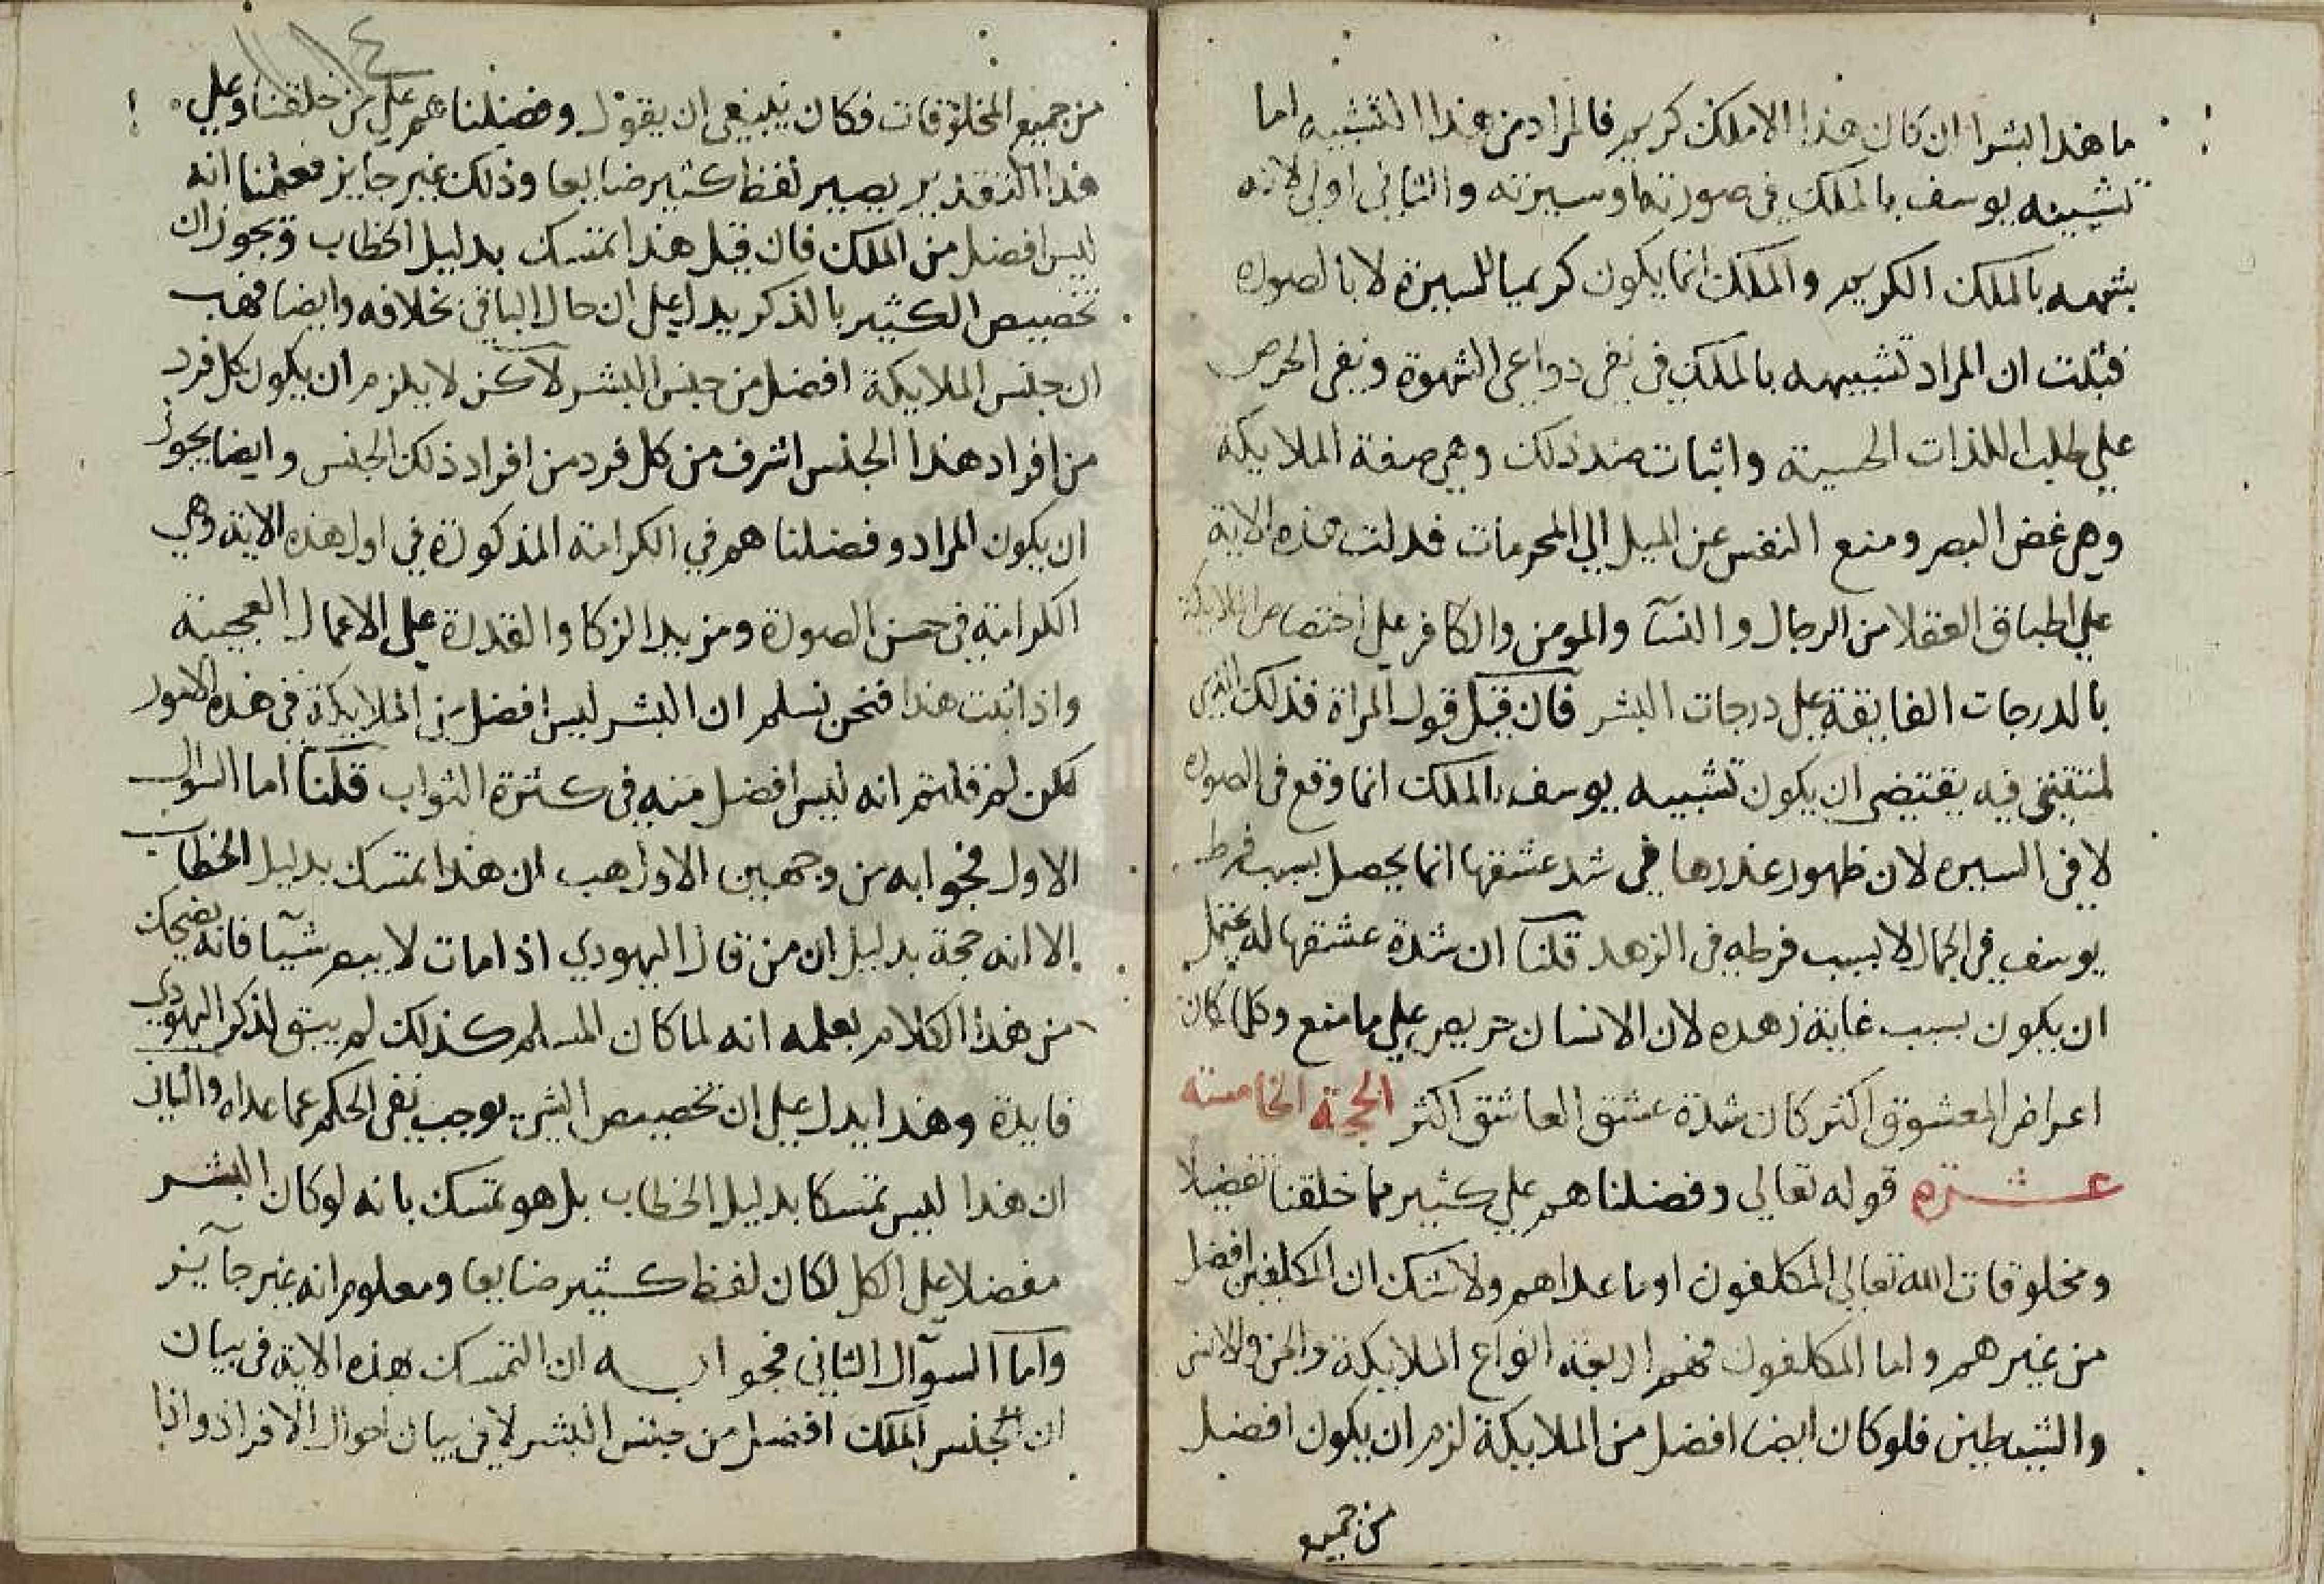 ما هذا البشرا ان كان هذا الا ملك كريم فالمراد من هذا التشبيه اما
تشبيه يوسف بالملك في صورته او سيرته والثاني اولي لانه
شبهه بالملك الكريم والملك انما يكون كريما للسيرة لا بالصوره
فثبت ان المراد تشبيهه بالملك في نفي دواعي الشهوة ونفي الحرص
علي طلب اللذات الحسية واثبات ضد ذلك وهي صفة الملايكة
وهي غض البصر ومنع النفس عن الميل الي المحرمات فدلت هذه الاية
علي اطباق العقلا من الرجال والنسآ والمومن والكافر علي اختصاص الملايكة
بالدرجات الفايقة علي درجات البشر فان قيل قول المراة فذلكن الذي
لمتنني فيه يقتضي ان يكون تشبيه يوسف بالملك انما وقع في الصوره
لا في السيره لان ظهور عذرها في شد عشقها انما يحصل بسبب فرط
يوسف في الجمال لا بسبب فرطه في الزهد قلنا ان شدة عشقها له يحتمل
ان يكون بسبب غاية زهده لان الانسان حريص علي ما منع وكلما كان
اعراض المعشوق اكثر كان شدة عشق العاشق اكثر الحجة الخامسة
عشره قوله تعالي وفضلناهم علي كثير مما خلقنا تفضيلا
ومخلوقات الله تعالي المكلفون او ما عداهم ولا شك ان المكلفين افضل
من غيرهم واما المكلفون فهم اربعة انواع الملايكة والجن والانس
والشيطين فلو كان ايضا افضل من الملايكة لزم ان يكون افضل
من جميع
من جميع المخلوقات فكان ينبغي ان يقول وفضلناهم علي من خلقنا وعلي
هذا التقدير يصير لفظ كثير ضايعا وذلك غير جايز فعلمنا انه
ليس افضل من الملك فان قيل هذا تمسك بدليل الخطاب ويجوز ان
تخصيص الكثير بالذكر يدل علي ان حال الباقي بخلافه وايضا فهب
ان جنس الملايكة افضل من جنس البشر لاكن لا يلزم ان يكون كل فرد
من افراد هذا الجنس اشرف من كل فرد من افراد ذلك الجنس وايضا يجوز
ان يكون المراد وفضلناهم في الكرامة المذكورة في اول هذه الاية وهي
الكرامة في حسن الصورة ومزيد الزكا والقدرة علي الاعمال العجيبة
واذا ثبت هذا فنحن نسلم ان البشر ليس افضل من الملايكة في هذه الامور
لكن لم قلتم انه ليس افضل منه في كثرة الثواب قلنا اما السوال
الاول فجوابه من وجهين الاول هب ان هذا تمسك بدليل الخطاب
الا انه حجة بدليل ان من قال اليهودي اذا مات لا يبصر شيآ فانه يضحك
من هذا الكلام بعلمه انه لما كان المسلم كذلك لم يبق لذكر اليهودي
فايدة وهذا يدل علي ان تخصيص الشي يوجب نفي الحكم عما عداه والثاني
ان هذا ليس تمسكا بدليل الخطاب بل هو تمسك بانه لو كان البشر
مفضلا علي الكل لكان لفظ كثير ضايعا ومعلوم انه غير جآيز
واما السوآل الثاني فجوابه ان التمسك بهذه الاية في بيان
ان الجنس الملك افضل من جنس البشر لا في بيان احوال الافراد واذا